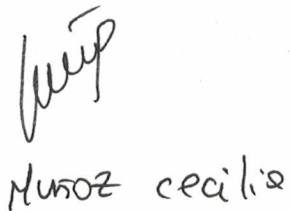 MUÑOZ cecilia